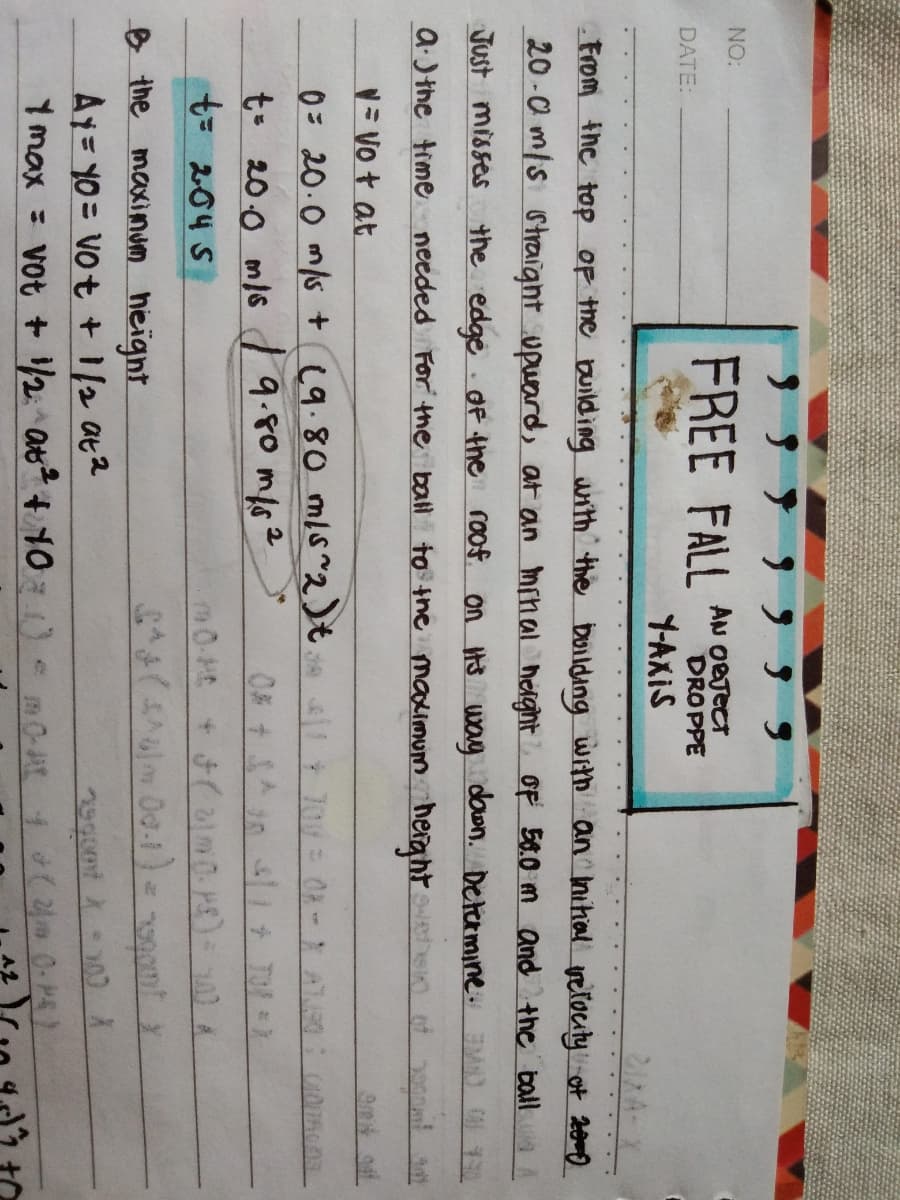 NO:
DATE:
FREE FALL AN OBJECT DROPPE
Y-AXIS
From the top of the building with the boilding with an initial velocity of
20.0 m/s straight upward, at an initial height of 50.0 m and the ball
Just misses the edge of the roof on its way down. Determine:
a.) the time needed for the ball to the maximum height
V = Vo + at
0 = 20.0 m/s + (9.80 m/s^2)t
t = 20.0 m/s / 9.80 m/s²
t = 2.04 s
B the maximum height
Δy = yo = Vo t + 1/2 at²
Y max = Vot + 1/2 at² + yo